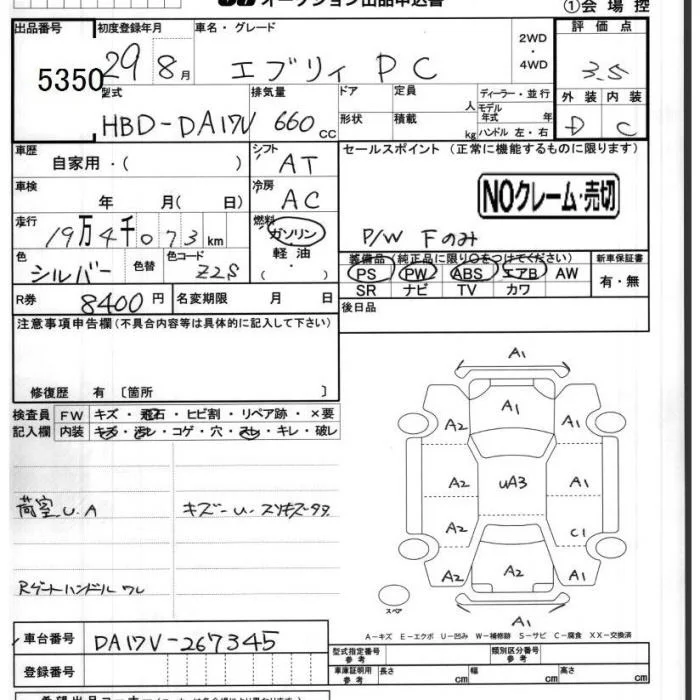 オークション出品申込書
①会場控
出品番号
5350
初度登録年月
29 8月
車名・グレード
エブリィ PC
2WD
・
4WD
評価点
3.5
外装 内装
D C
型式
HBD-DA17V
排気量
660 cc
ドア
形状
定員
人
積載
kg
ディーラー・並行
モデル
年式 年
ハンドル 左・右
車歴
自家用・( )
シフト
AT
セールスポイント (正常に機能するものに限ります)
NOクレーム・売切
車検
年 月( 日)
冷房
AC
走行
19万4千073km
燃料
ガソリン
軽油
( )
P/W Fのみ
色
シルバー
色替
色コード
Z2S
装備品 (純正品に限り○をつけてください)
PS PW ABS エアB AW
SR ナビ TV カワ
新車保証書
有・無
R券
8400円
名変期限 月 日
後日品
注意事項申告欄(不具合内容等は具体的に記入して下さい)
修復歴 有 〔箇所 〕
検査員
記入欄
FW キズ・飛石・ヒビ割・リペア跡・×要
内装 キズ・汚レ・コゲ・穴・スレ・キレ・破レ
荷室 U.A
キズ-U.スリキズ多々
Rゲートハンドルワレ
A1
A2 A1 A1
A2 uA3 A1
A2 C1
A2 A2 A1
A1
スペア
A-キズ E-エクボ U-凹み W-補修跡 S-サビ C-腐食 XX-交換済
車台番号
DA17V-267345
登録番号
型式指定番号
参考
類別区分番号
参考
車庫証明用
参考
長さ cm
幅 cm
高さ cm